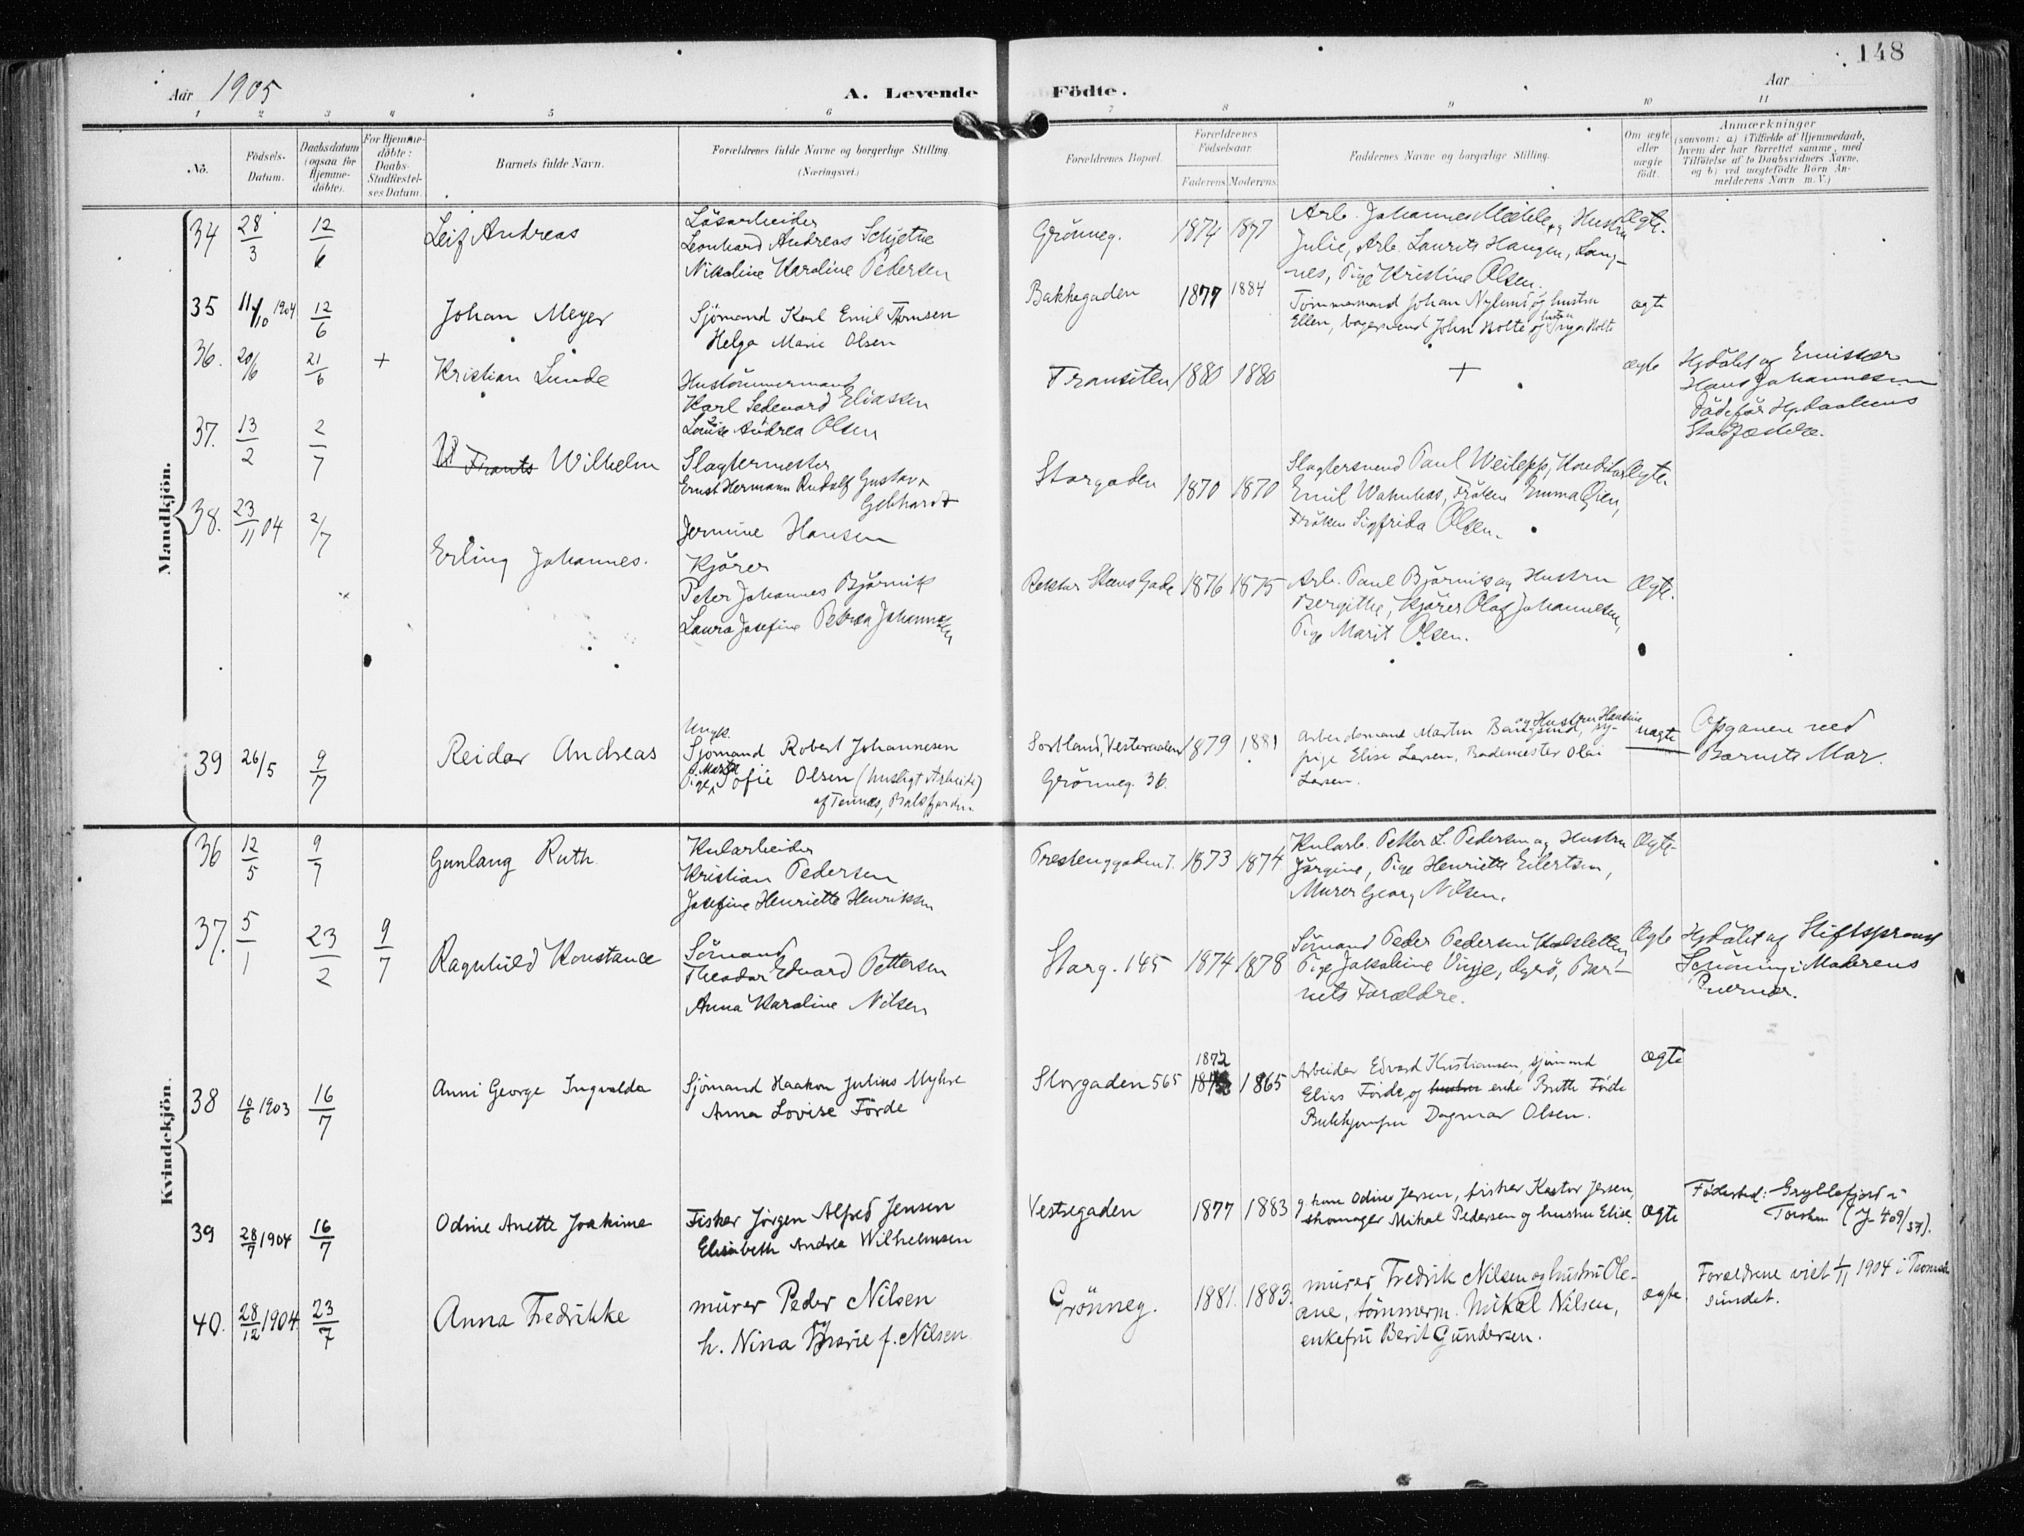 148
Aar 1905
A. Levende Födte.
Aar
1 2 3 4 5 6 7 8 9 10 11
No.
Födsels-Datum.
Daabsdatum (ogsaa for Hjemme-döbte).
For Hjemme-döbte: Daabs Stadfæstel-ses Datum.
Barnets fulde Navn.
Forældrenes fulde Navne og borgerlige Stilling. (Næringsvei.)
Forældrenes Bopæl.
Forældrenes Födselsaar.
Faderens Moderens
Faddernes Navne og borgerlige Stilling.
Om ægte eller uægte födt.
Anmærkninger
(saasom: a) i Tilfælde af Hjemmedaab,
hvem der har forrettet samme, med
Tilföielse af to Daabsvidners Navne,
og b) ved uægtefödte Börn An-
melderens Navn m. V.)
Mandkjön.
34 28/3 12/6 Leif Andreas
Lösarbeider
Leonhard Andreas Schjetne
Nikoline Karoline Pedersen
Grönneg. 1874 1877
Arb. Johannes Mæhle og Hustru
Julie, Arb. Laurits Haugen, Lang-
nes, Pige Kristine Olsen.
Ægte.
35 11/10 1904 12/6 Johan Meyer
Sjömand Karl Emil Thomsen
Helga Marie Olsen
Bakkegaden 1877 1884
Tömmermand Johan Nylund og hustru
Ellen, bagersvend John Holte og hustru Inga Holte
ægte
36. 20/6 21/6 + Kristian Lunde
Hustömmermand
Karl Sedevard Eliassen
Louise Andrea Olsen
Transiten 1880 1880
+
ægte
Hjdöbt af Emissær
Hans Johannesen
Död för Hjdaabens
Stadfæstelse.
37. 13/2 2/7 Frants Wilhelm
Slagtermester
Ernst Hermann Rudolf Gustav
Gebhardt
Jermine Hansen
Storgaden 1870 1870
Slagtersvend Paul Weilepp, Konditor
Emil Wahnless, Fröken Emma Öien,
Fröken Sigfrida Olsen.
Ægte.
38. 23/11 04 2/7 Erling Johannes.
Kjörer
Peter Johannes Björnvik
Laura Josefine Petrea Johannesen
Rektor Steens Gade 1876 1875
Arb. Paul Björnvik og Hustru
Bergithe, Kjörer Olaf Johannesen,
Pige Marit Olsen.
Ægte.
39 26/5 9/7 Reidar Andreas
Ungk.
Sjömand Robert Johannesen
Pige Marta Sofie Olsen (husligt Arbeide)
af Tennes, Balsfjorden
Sortland, Vesteraalen 1879 1881
Grönneg. 36.
Arbeidsmand Martin Bangsund, og Hustru Hansine, sy-
pige Elise Larsen, Bademester Olai
Larsen.
uægte
Opgaven ved
Barnets Mor.
Kvindekjön.
36 12/5 9/7 Gunlaug Ruth
Kularbeider
Kristian Pedersen
Josefine Henriette Henriksen
Prestenggaden 7. 1873 1874
Kularb. Petter L. Pedersen og Hustru
Jörgine, Pige Henriette Eilertsen,
Murer Georg Nilsen.
Ægte
37. 5/1 23/2 9/7 Ragnhild Konstance
Sömand
Theodor Edvard Pettersen
Anna Karoline Nilsen
Storg. 145 1874 1878
Sömand Peder Pedersen Kalsletten,
Pige Jakobine Vinje, Gyrö, Bar-
nets Forældre.
Ægte
Hjdöbt af Stiftsprovst
Schöning i Moderens
Nærvær.
38 10/6 1903 16/7 Anni George Ingvalda
Sjömand Haakon Julius Myhre
Anna Lovise Förde
Storgaden 565 1872 1865
Arbeider Edvard Kristiansen, sjömand
Elias Förde og hustru enke Brith Förde
Butikjomfru Dagmar Olsen.
ægte
39 28/7 1904 16/7 Odine Anette Joakime
Fisker Jörgen Alfred Jensen
Elisabeth Andrea Wilhelmsen
Vestregaden 1877 1883
Gkone Odine Jensen, fisker Kastor Jensen,
skomager Mikal Pedersen og hustru Elise.
ægte
Födested: Gryllefjord i
Torsken (J. 409/37).
40. 28/12 1904. 23/7 Anna Fredrikke
murer Peder Nilsen
h. Nina Marie f. Nilsen
Grönneg. 1881. 1883.
murer Fredrik Nilsen og hustru Ole-
ane, tömmerm. Mikal Nilsen,
enkefru Berit Gundersen.
ægte.
Forældrene viet 1/11 1904 i Tromsö-
sundet.